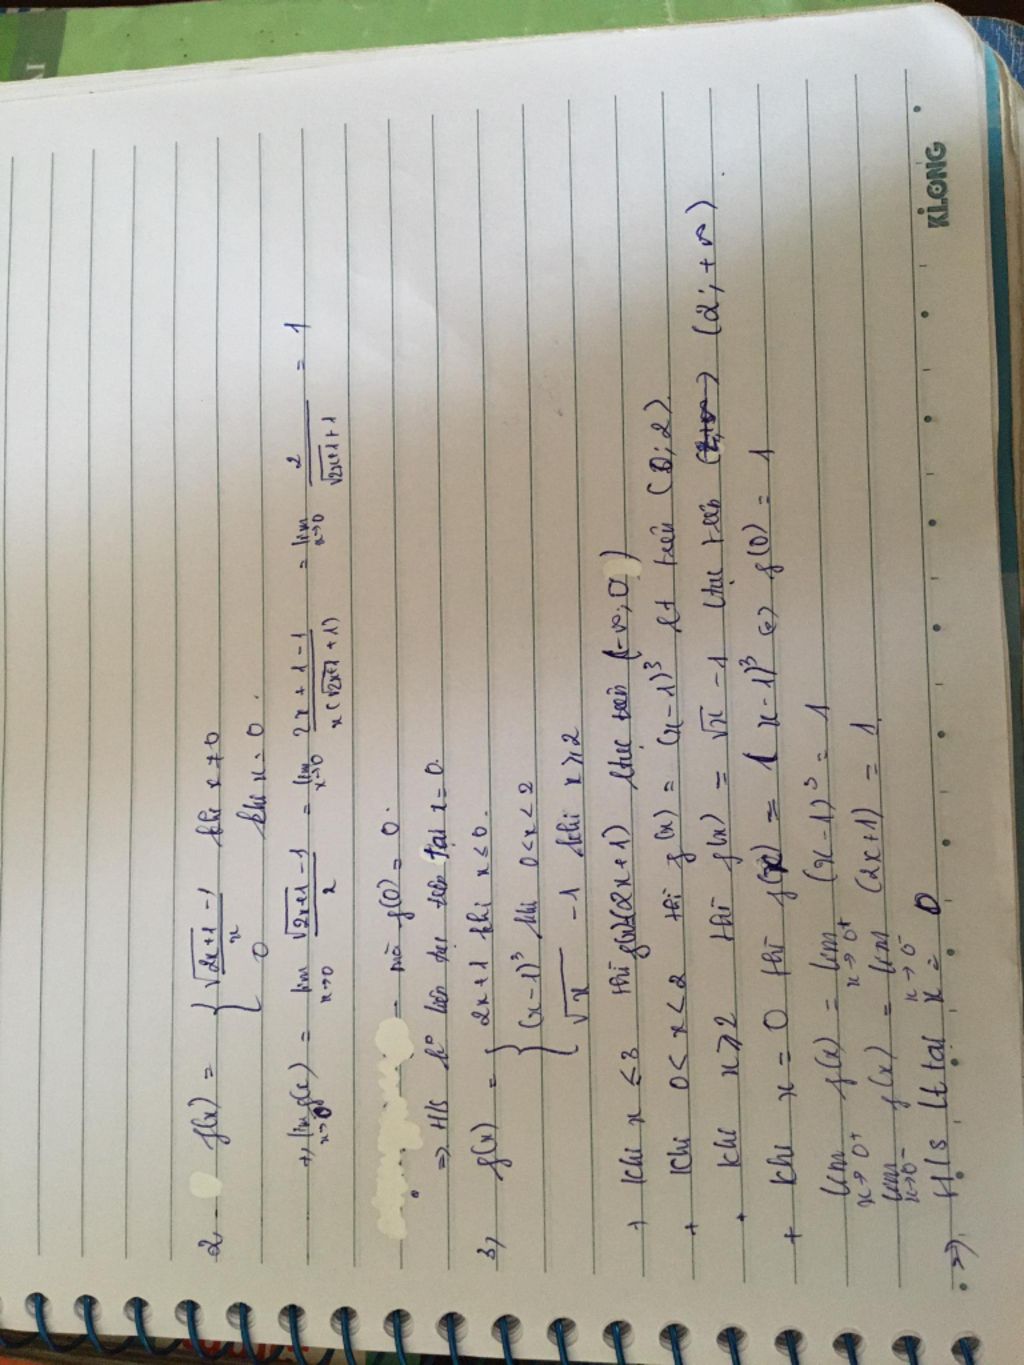 2 - f(x) = { (√(2x+1) - 1)/x khi x ≠ 0
0 khi x = 0.
+) lim x→0 f(x) = lim x→0 (√(2x+1) - 1)/x = lim x→0 (2x + 1 - 1)/(x(√(2x+1) + 1)) = lim x→0 2/(√(2x+1) + 1) = 1
- mà f(0) = 0.
=> H/s k° liên tục trên tại x = 0.
3) f(x) = { 2x + 1 khi x ≤ 0.
(x - 1)³ khi 0 < x < 2
√x - 1 khi x ≥ 2
+ Khi x ≤ 3 thì f(x)=(2x + 1) ltục trên (-∞; 0)
+ Khi 0 < x < 2 thì f(x) = (x - 1)³ lt trên (0; 2)
+ khi x ≥ 2 thì f(x) = √x - 1 ltục trên (2; +∞)
+ khi x = 0 thì f(x) = (x - 1)³ f(0) = 1
lim x→0⁺ f(x) = lim x→0⁺ (x - 1)³ = 1
lim x→0⁻ f(x) = lim x→0⁻ (2x + 1) = 1
=> H/s lt tại x = 0
KLONG